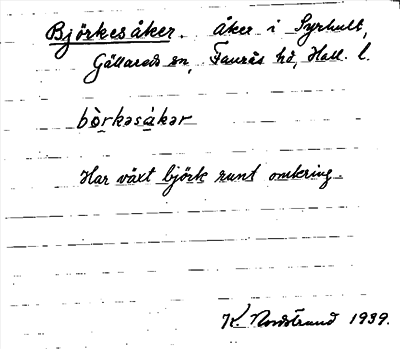 Björkesåker. åker i Syrhult,
Gällareds sn, Faurås hd, Hall. l.
bòrkəsåkər
Har växt björk runt omkring.
K. Nordstrand 1939.